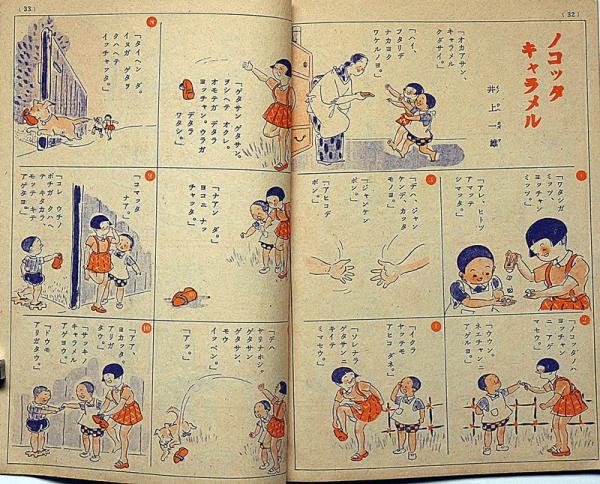 (32)
ノコッタ
キャラメル
井上一雄
「オカアサン、
キャラメル
クダサイ。」
「ハイ、
フタリデ
ナカヨク
ワケルノヨ。」
1
「ワタシガ
ミッツ、
ヨッチャン
ミッツ。」
「アレ、ヒトツ
アマッテ
シマッタ。」
2
「ノコッタノハ
ヨッチャン
ニ アゲ
マセウ。」
「ウウン。
ネエチャンニ
アゲルヨ。」
3
「デハ、ジャン
ケンデ、カッタ
モノヨ。」
「ジャンケン
ポン。」
「アヒコデ
ポン。」
4
「イクラ
ヤッテモ
アヒコ ダネ。」
「ソレナラ
ゲタサンニ
キイテ
ミマセウ。」
(33)
「ゲタサン ゲタサン。
ヲシヘテ オクレ。
オモテガ デタラ
ヨッチャン。ウラガ
デタラ
ワタシ。」
「ナアンダ。
ヨコニ ナッ
チャッタ。」
「デハ
ヤリナホシ。
ゲタサン
ゲタサン
モウ
イッペン。」
「アッ。」
8
「タイヘンダ。
イヌガ ゲタヲ
クハヘテ
イッチャッタ。」
9
「コマッタ
ナア。」
「コレ ウチノ
ポチガ クハヘ
テ キタカラ
モッテ キテ
アゲタヨ。」
10
「アア、
ヨカッタ。
アリガ
タウ。」
「サッキノ
キャラメル
アゲヨウ。」
「ドウモ
アリガタウ。」